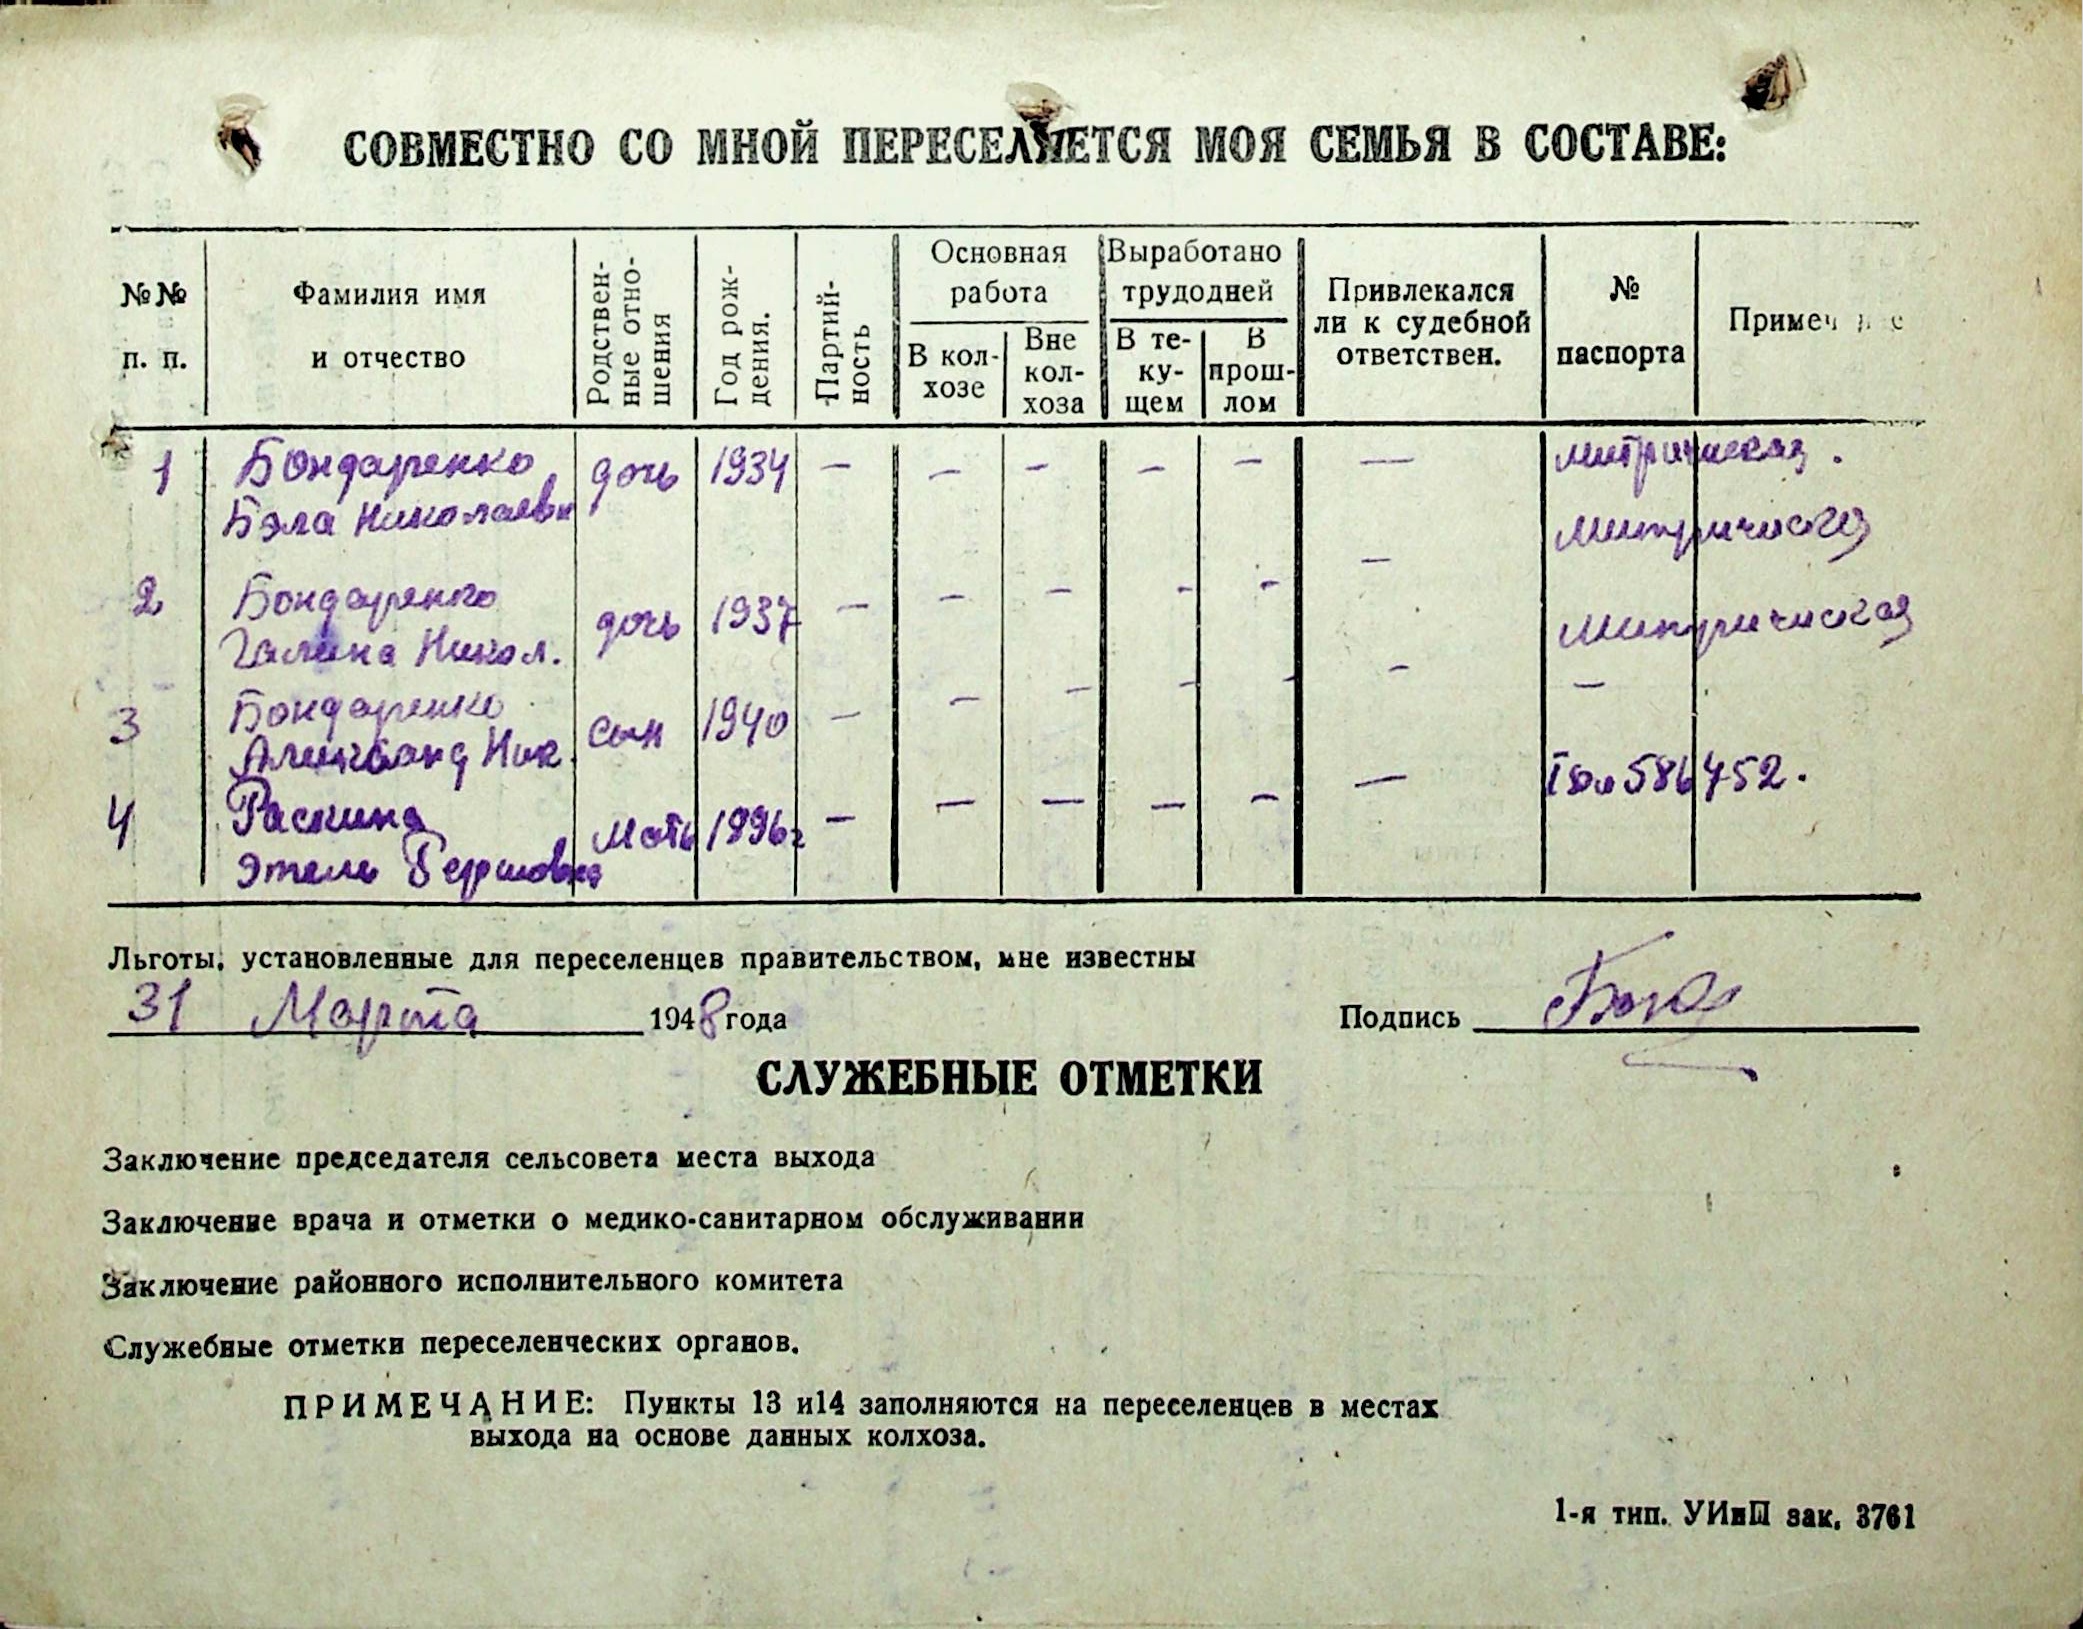 СОВМЕСТНО СО МНОЙ ПЕРЕСЕЛЯЕТСЯ МОЯ СЕМЬЯ В СОСТАВЕ:
№№ п. п.
Фамилия имя и отчество
Родствен-
ные отно-
шения
Год рож-
дения.
Партий-
ность
Основная
работа
В кол-
хозе
Вне
кол-
хоза
Выработано
трудодней
В те-
ку-
щем
В
прош-
лом
Привлекался
ли к судебной
ответствен.
№
паспорта
Примеч
1 Бондаренко дочь 1934 — — — — — — митрическая.
Бэла Николаевн
митрическая
2 Бондаренко дочь 1937 — — — — — —
Галина Никол.
митрическая
3 Бондаренко сын 1940 — — — — — — —
Александ Ник.
4 Раскина мать 1996г — — — — — — 586452.
Этель Бершовна
Льготы, установленные для переселенцев правительством, мне известны
31 Марта 1948 года Подпись
СЛУЖЕБНЫЕ ОТМЕТКИ
Заключение председателя сельсовета места выхода
Заключение врача и отметки о медико-санитарном обслуживании
Заключение районного исполнительного комитета
Служебные отметки переселенческих органов.
ПРИМЕЧАНИЕ: Пункты 13 и14 заполняются на переселенцев в местах
выхода на основе данных колхоза.
1-я тип. УИиП зак. 3761